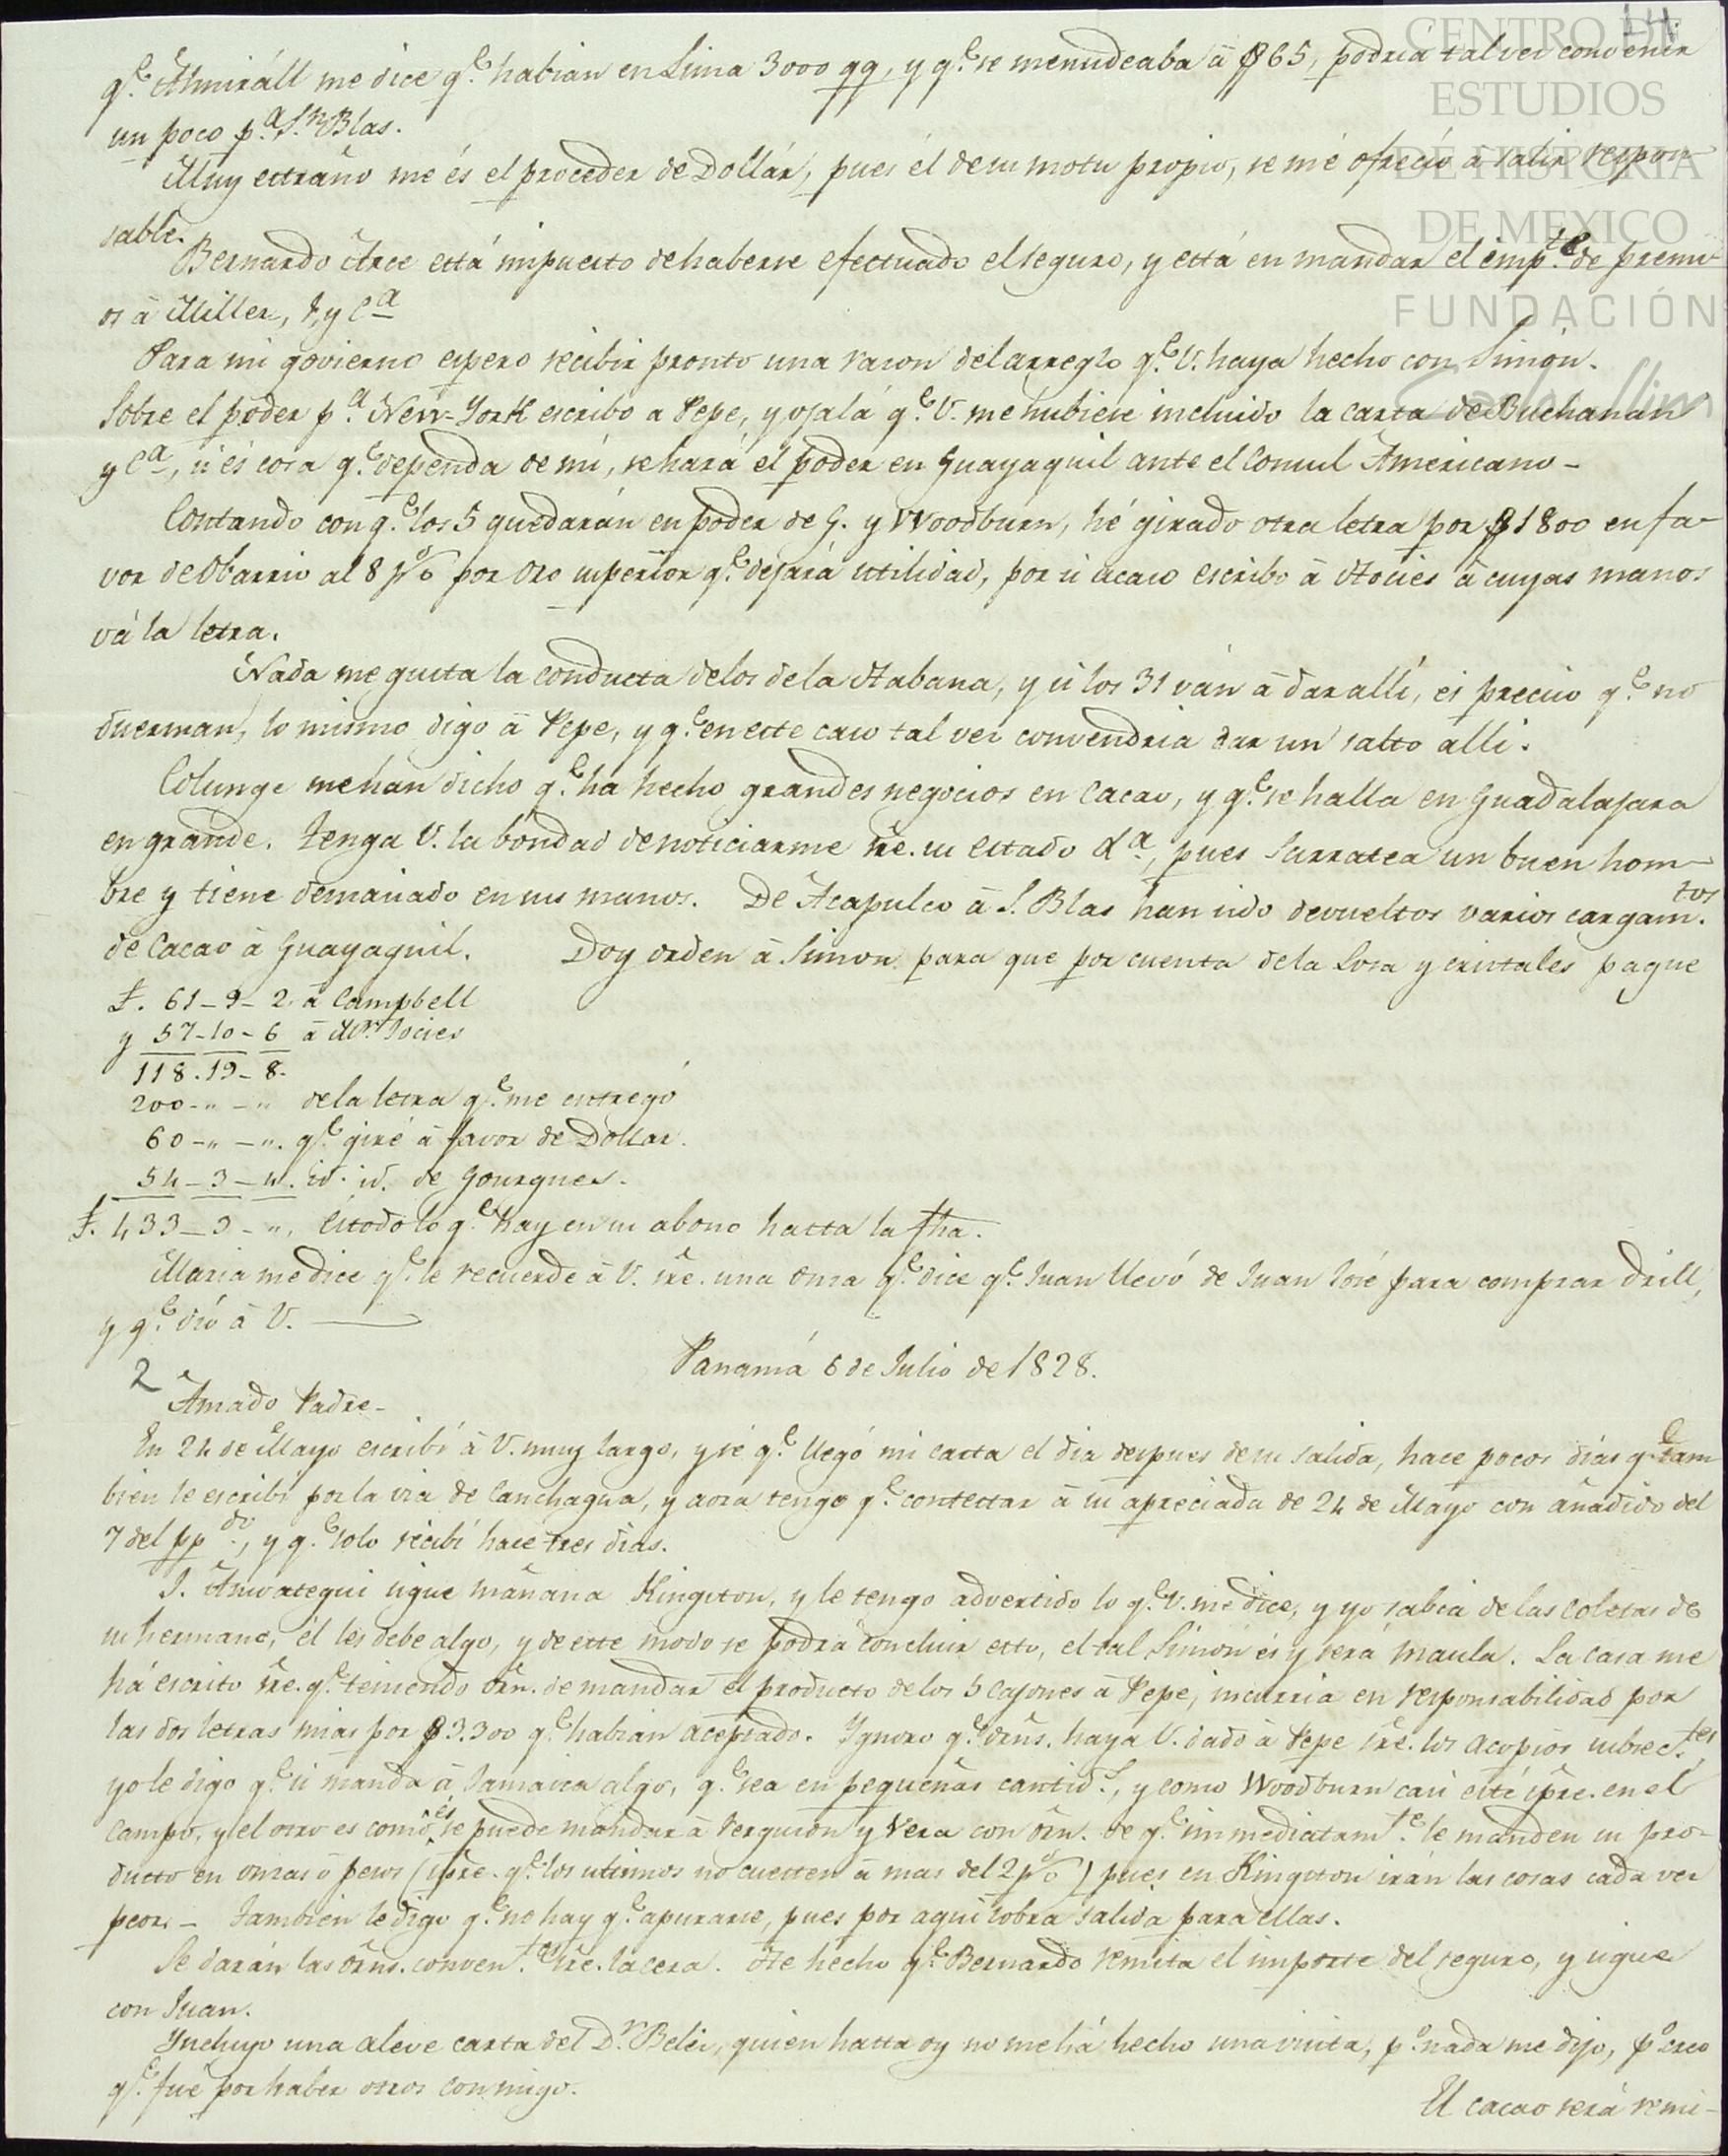 CENTRO DE
ESTUDIOS
DE HISTORIA
DE MEXICO
FUNDACIÓN
Carlos Slim
14
q.e Almiráll me dice q.e habian en Lima 3000 qq, y q.e se menudeaba â $65, podria talvez convenir
un poco p.a S.n Blas.
Muy estraño me és el proceder de Dollár, pues él de su motu propio, se me ofreció â salir respon-
sable.
Bernardo Arce está impuesto de haberse efectuado el seguro, y está en mandar el imp.te de premi-
os â Miller, F, y C.a
Para mi govierno espero recibir pronto una razon del arreglo q.e V. haya hecho con Simón.
Sobre el poder p.a New-York escribo a Pepe, y ojalá q.e V. me hubiese incluido la carta de Buchanan
y C.a, si és cosa q.e dependa de mi, se hará el poder en Guayaquil ante el Consul Americano-
Contando con q.e los 5 quedarán en poder de G. y Woodburn, hé girado otra letra por $1800 en fa-
vor de Obarrio al 8 p% por Oro superior q.e dejará utilidad, por si acaso escribo â Stocies â cuyas manos
vá la letra.
Nada me gusta la conducta de los de la Habana, y si los 31 ván â dar allí, es preciso q.e no
duerman, lo mismo digo â Pepe, y q.e en este caso tal vez convendria dar un salto alli.
Colunge me han dicho q.e ha hecho grandes negocios en Cacao, y q.e se halla en Guadalajara
en grande. Tenga V. la bondad de noticiarme sre. su estado &.a, pues Sarratea un buen hom-
bre y tiene demasiado en sus manos. De Acapulco â S. Blas han sido devueltos varios cargam.tos
de Cacao â Guayaquil. Doy orden â Simon para que por cuenta de la Losa y cristales pague
£. 61-9-2 â Campbell
y 57-10-6 â Socies
118.19-8.
200-"-" de la letra q.e me entregó
60-"-". q.e giré â favor de Dollar.
54-3-4. id. id. de Gourgues.
£. 433-3-", Es todo lo q.e hay en su abono hasta la fha.
Maria me dice q.e le recuerde â V. sre. una onza q.e dice q.e Juan llevó de Juan José para comprar Drill,
y q.e dió â V.
Panamá 6 de Julio de 1828.
2
Amado Padre-
En 24 de Mayo escribí â V. muy largo, y sé q.e llegó mi carta el dia despues de su salida, hace pocos dias q.e tam
bien le escribí por la via de Conchagua, y aora tengo q.e contestar â su apreciada de 24 de Mayo con añadido del
7 del pp.do, y q.e solo recibí hace tres dias.
J. Amoategui sigue mañana Kingston, y le tengo advertido lo q.e V. me dice, y yo sabia de las coletas de
su hermano, él les debe algo, y de este modo se podrá concluir esto, el tal Simón és y será maula. La casa me
há escrito sre. q.e teniendo orn. de mandar el producto de los 5 cajones â Pepe, incurria en responsabilidad por
las dos letras mias por $3.300 q.e habian aceptado. Ygnoro q.e orns. haya V. dado â Pepe sre. los acopios subsec.tes
yo le digo q.e si manda â Jamaica algo, q.e sea en pequeñas cantid.s, y como Woodburn casi esté spre. en el
campo, y el otro es como és se puede mandar â Ferguson y Vera con orn. de q.e immediatam.te le manden su pro-
ducto en onzas ô pesos (spre. q.e los ultimos no cuesten â mas del 2 p%) pues en Kingston irán las cosas cada vez
peor.- Tambien le digo q.e no hay q.e apurarse, pues por aqui sobra salida para ellas.
Se darán las orns. conven.tes sre. la cera. He hecho q.e Bernardo remita el importe del seguro, y sigue
con Juan.
Yncluyo una aleve carta del D.r Beler, quien hasta oy no me há hecho una visita, p.o nada me dijo, p.o creo
q.e fué por haber otros conmigo.
El cacao será remi-